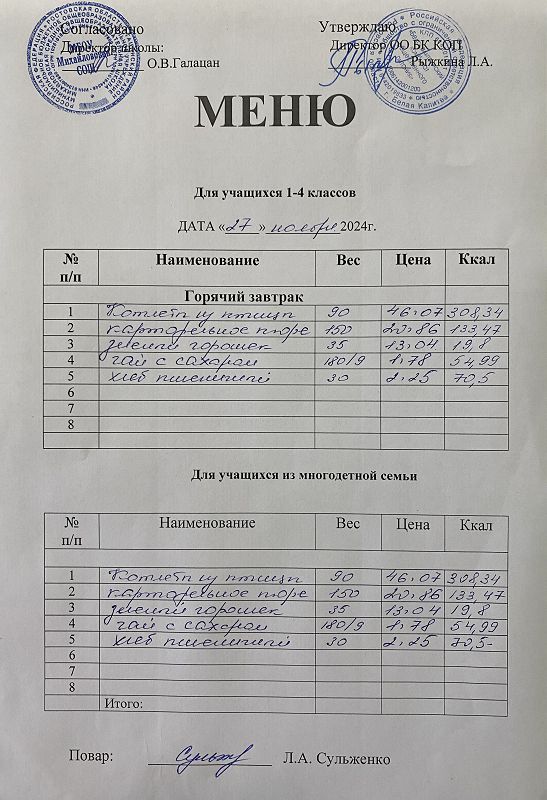 Согласовано Утверждаю
Директор школы: Директор ОО БК КОП
О.В.Галацан Рыжкина Л.А.
МЕНЮ
Для учащихся 1-4 классов
ДАТА «27» ноября 2024г.
№ п/п Наименование Вес Цена Ккал
Горячий завтрак
1 Котлеты из птицы 90 46.07 308,34
2 картофельное пюре 150 20.86 133,47
3 зеленый горошек 35 13.04 19,8
4 чай с сахаром 180/9 1.78 54,99
5 хлеб пшеничный 30 2.25 70,5
6
7
8
Для учащихся из многодетной семьи
№ п/п Наименование Вес Цена Ккал
1 Котлеты из птицы 90 46.07 308,34
2 картофельное пюре 150 20.86 133,47
3 зеленый горошек 35 13.04 19,8
4 чай с сахаром 180/9 1.78 54,99
5 хлеб пшеничный 30 2.25 70,5-
6
7
8
Итого:
Повар: Л.А. Сульженко